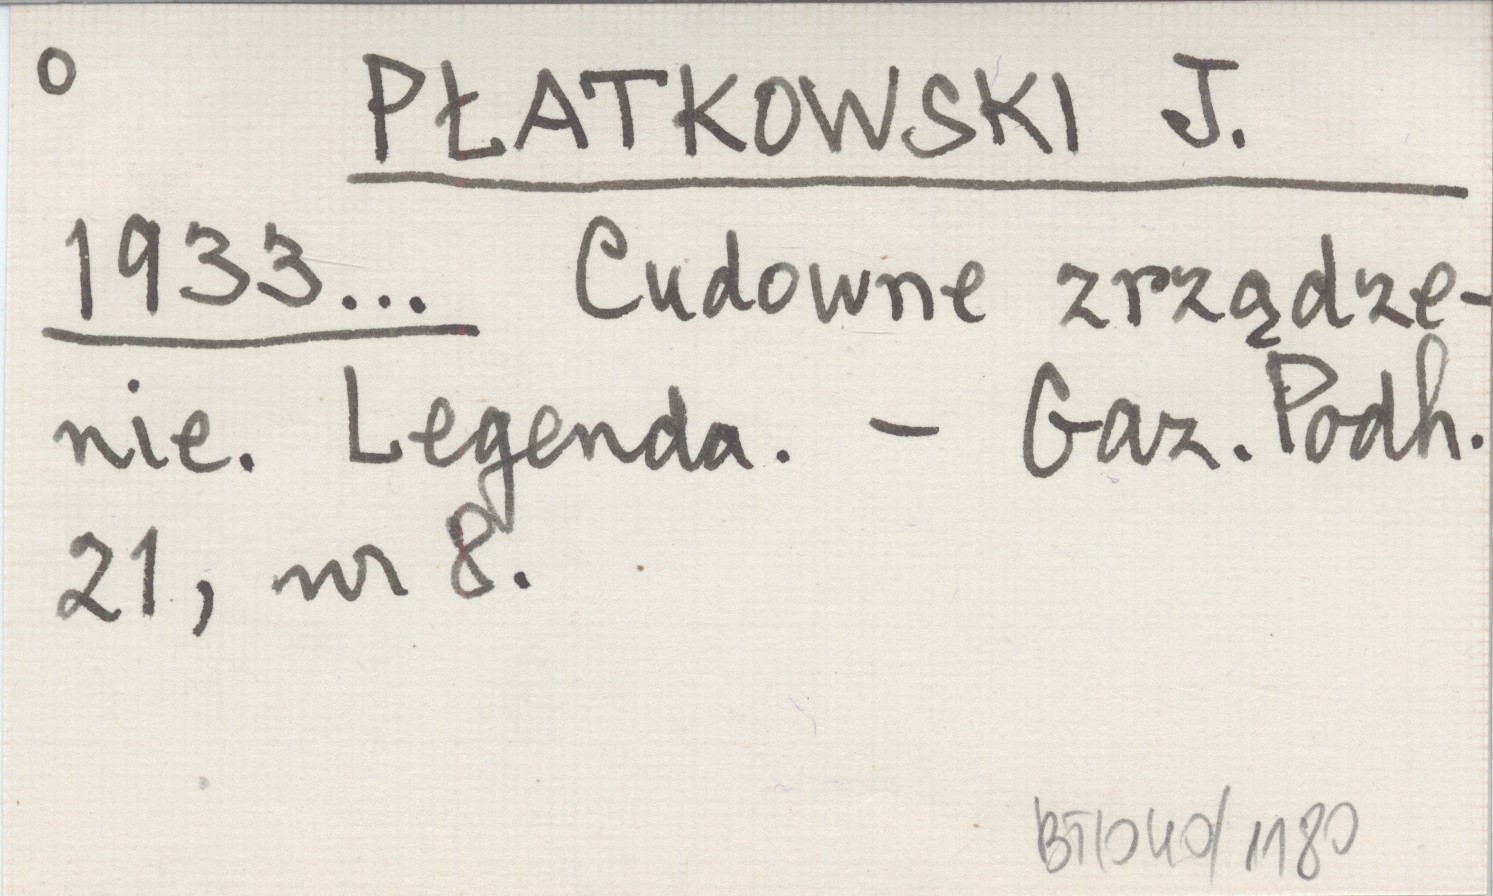 o
PŁATKOWSKI J.
1933... Cudowne zrządze-
nie. Legenda. – Gaz. Podh.
21, nr 8.